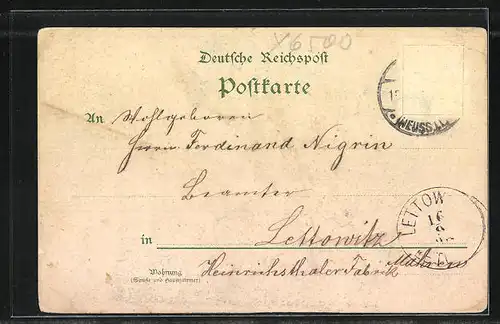 X6500
Deutsche Reichspost
Postkarte
An Wohlgeboren
Herrn Ferdinand Nigrin
Beamter
in Lettowitz
Wohnung
(Straße und Hausnummer)
Heinrichsthaler Fabrik Mähren
NEUSS
LETTOW
16
9